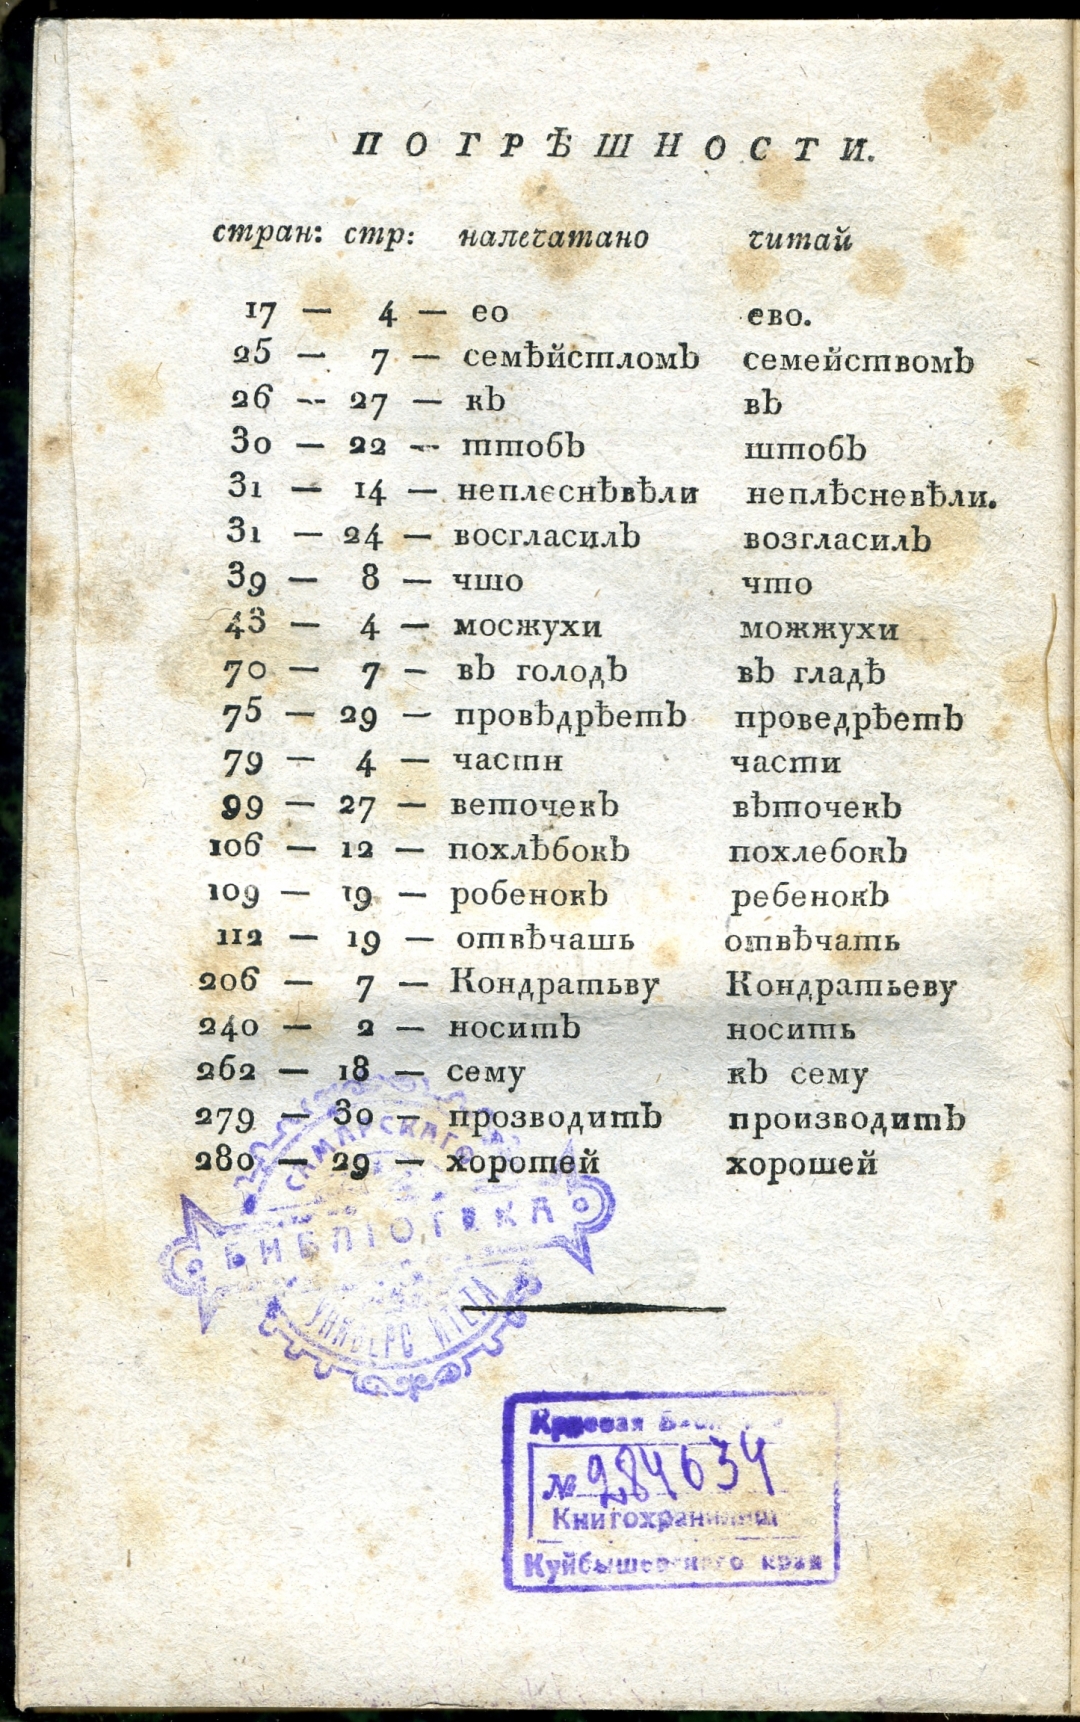 ПОГРѢШНОСТИ.
стран: стр: напечатано читай
17 — 4 — ео ево.
25 — 7 — семѣйстломъ семействомъ
26 — 27 — къ въ
30 — 22 — ттобъ штобъ
31 — 14 — неплєснѣвѣли неплѣсневѣли.
31 — 24 — восгласилъ возгласилъ
39 — 8 — чшо что
43 — 4 — мосжухи можжухи
70 — 7 — въ голодъ въ гладѣ
75 — 29 — провѣдрѣетъ проведрѣетъ
79 — 4 — частн части
99 — 27 — веточекъ вѣточекъ
106 — 12 — похлѣбокъ похлебокъ
109 — 19 — робенокъ ребенокъ
112 — 19 — отвѣчашь отвѣчать
206 — 7 — Кондратьву Кондратьеву
240 — 2 — носитъ носить
262 — 18 — сему къ сему
279 — 30 — прозводитъ производитъ
280 — 29 — хоротей хорошей
САМАРСКАГО
БИБЛІОТЕКА
УНИВЕРСИТЕТА
Краевая
№ 284634
Книгохранилище
Куйбышевского края